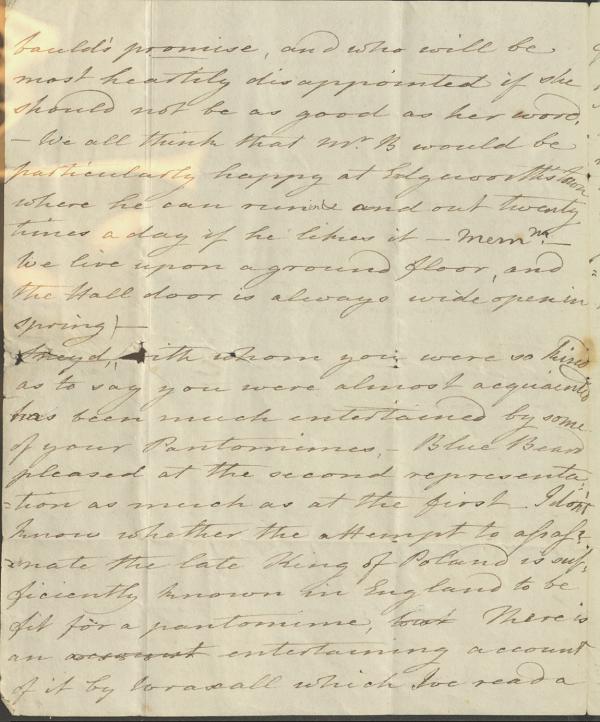 bauld's promise, and who will be
most heartily disappointed if she
should not be as good as her word,
- We all think that Mr. B would be
particularly happy at Edgeworthstown
where he can run in and out twenty
times a day if he likes it - Memm. -
We live upon a ground floor, and
the Hall door is always wide open in
spring) -
Sneyd, with whom you were so kind
as to say you were almost acquainted
has been much entertained by some
of your Pantomimes. - Blue Beard
pleased at the second representa-
=tion as much as at the first. I don't
know whether the attempt to assas=
=nate the late King of Poland is suf=
ficiently known in England to be
fit for a pantomime, but There is
an account entertaining account
of it by Wraxall which I've read a